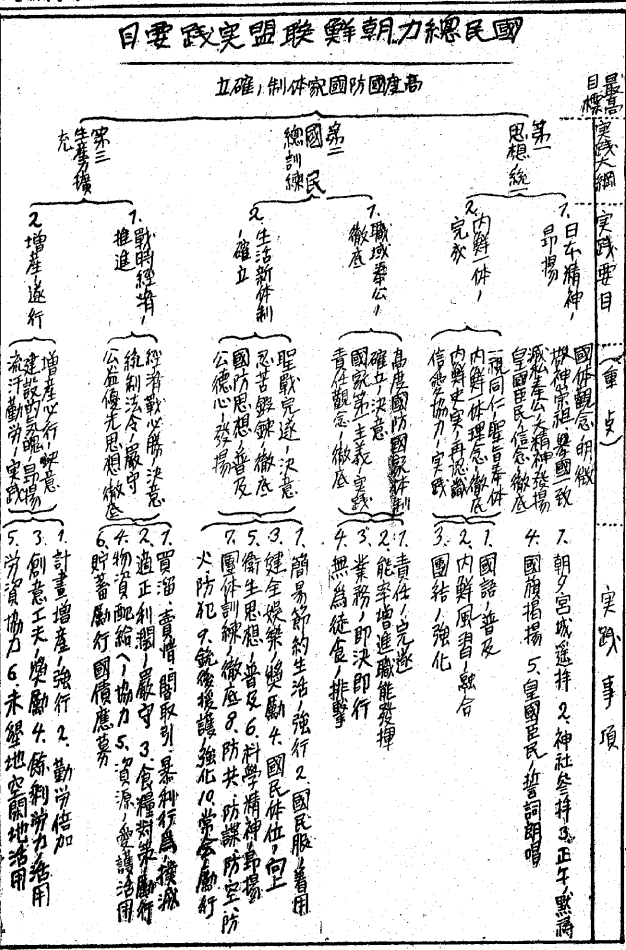 國民總力朝鮮聯盟実践要目
高度國防國家体制ノ確立
最高目標
実践大綱
実践要目
(重点)
実践事項
第一
思想統一
1. 日本精神ノ
昂揚
國体観念ノ明徴
敬神崇祖、擧國一致
滅私奉公ノ大精神ノ發揚
皇國臣民ノ信念徹底
1. 朝夕宮城遥拝 2. 神社参拝 3. 正午ノ黙祷
4. 國旗掲揚 5. 皇國臣民ノ誓詞朗唱
2. 内鮮一体ノ
完成
一視同仁ノ聖旨奉体
内鮮一体理念ノ徹底
内鮮史実ノ再認識
信愛協力ノ実践
1. 國語ノ普及
2. 内鮮風習ノ融合
3. 團結ノ強化
第二
國民
總訓練
1. 職域奉公ノ
徹底
高度國防國家体制
確立ノ決意
國家第一主義ノ実践
責任観念ノ徹底
1. 責任ノ完遂
2. 能率増進職能發揮
3. 業務ノ即決即行
4. 無為徒食ノ排撃
2. 生活新体制
ノ確立
聖戰完遂ノ決意
忍苦鍛錬ノ徹底
國防思想ノ普及
公德心ノ發揚
1. 簡易節約生活ノ強行 2. 國民服ノ着用
3. 健全娯樂ノ奬勵 4. 國民体位ノ向上
5. 衛生思想ノ普及 6. 科學精神ノ昂揚
7. 團体訓練ノ徹底 8. 防共、防諜、防空、防
火、防犯 9. 銃後援護ノ強化 10. 常会ノ勵行
第三
生産ノ擴
充
1. 戰時経済ノ
推進
経済戰必勝ノ決意
統制法令ノ嚴守
公益優先思想ノ徹底
1. 買溜、賣惜、闇取引、暴利行為ノ撲滅
2. 適正利潤ノ嚴守 3. 食糧対策ノ勵行
4. 物資配給ヘノ協力 5. 資源ノ愛護活用
6. 貯蓄勵行國債應募
2. 増産ノ遂行
増産必行ノ決意
建設的気魄ノ昂揚
流汗勤労ノ実践
1. 計畫増産ノ強行 2. 勤労倍加
3. 創意工夫ノ奬勵 4. 餘剩労力ノ活用
5. 労資協力 6. 未墾地空閑地ノ活用